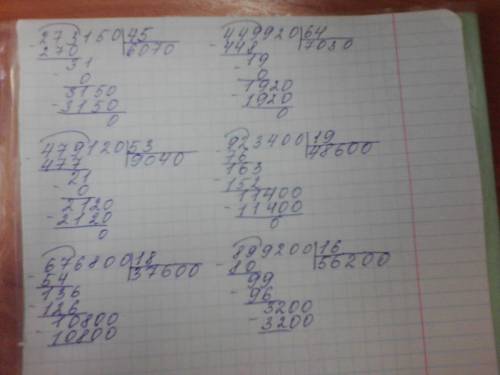 273150 | 45
270 6070
31
0
3150
- 3150
0
449920 | 64
- 448 7030
- 19
0
1920
- 1920
0
479120 | 53
- 477 9040
- 21
0
2120
- 2120
0
923400 | 19
- 76 48600
163
- 152
11400
- 11400
0
676800 | 18
- 54 37600
136
- 126
10800
- 10800
899200 | 16
- 80 56200
99
- 96
3200
- 3200